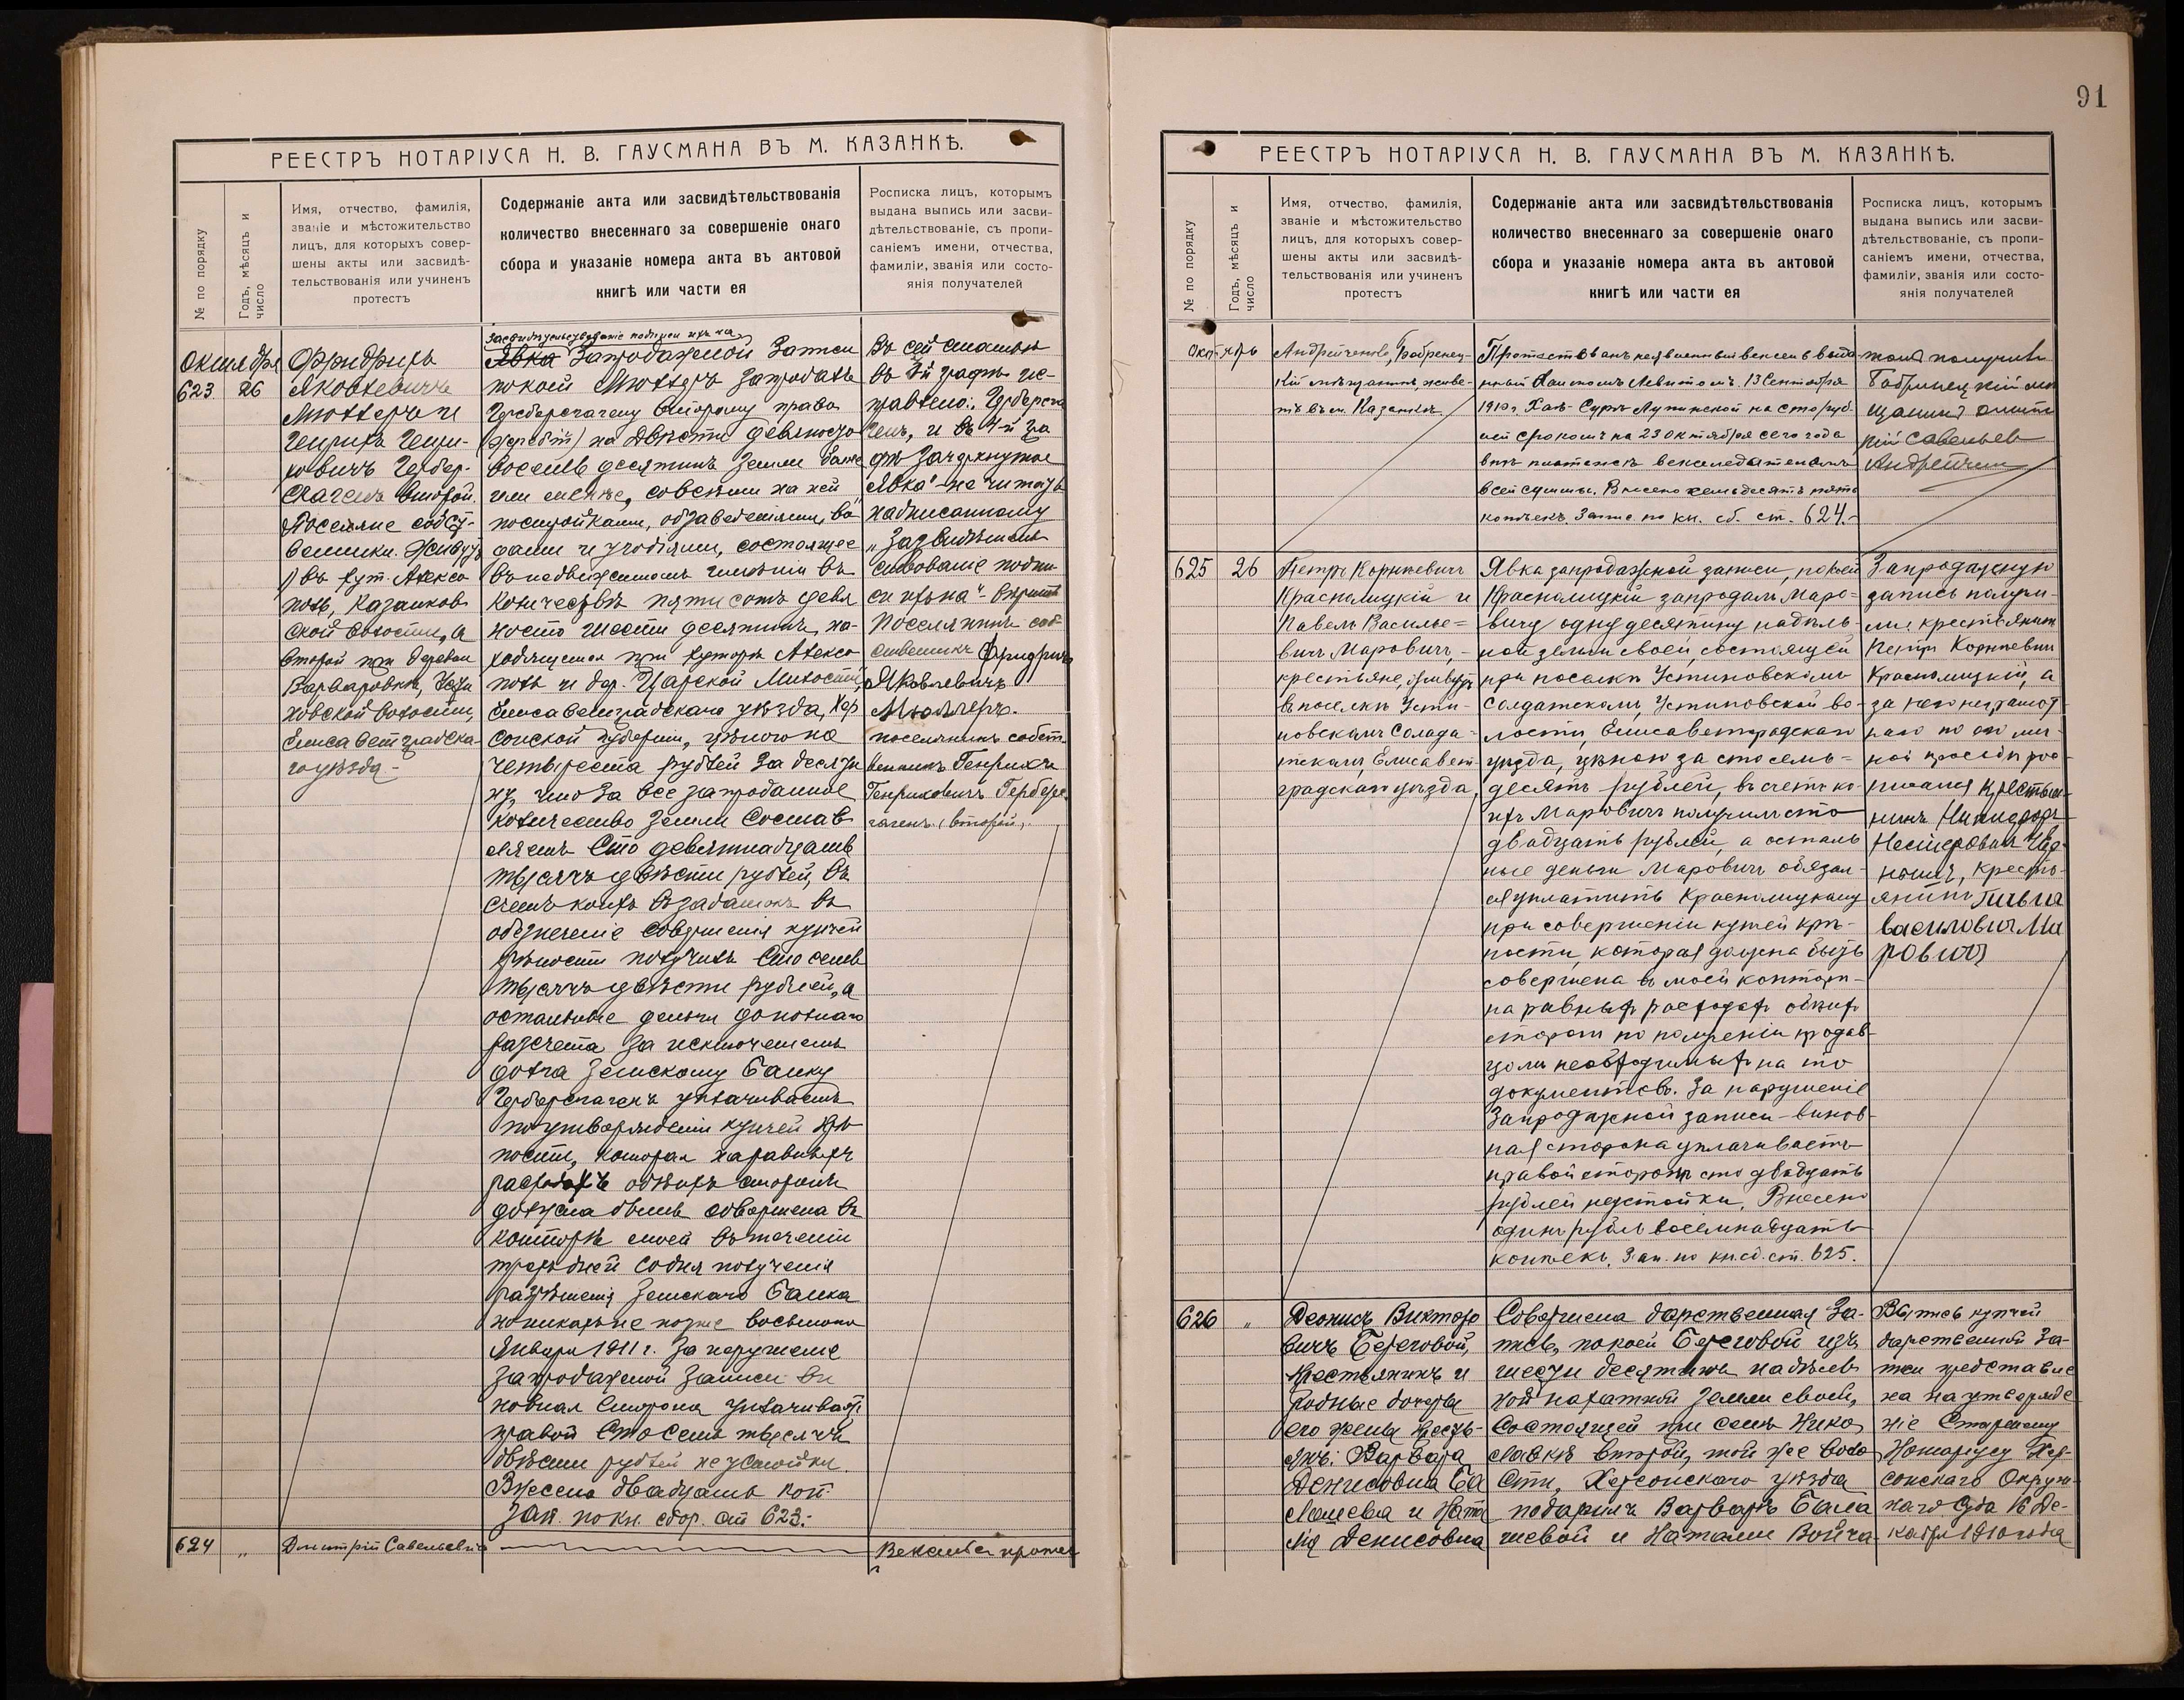 РЕЕСТРЪ НОТАРІУСА Н. В. ГАУСМАНА ВЪ М. КАЗАНКѢ.
№ по порядку
Годъ, мѣсяцъ и
число
Имя, отчество, фамилія,
званіе и мѣстожительство
лицъ, для которыхъ совер-
шены акты или засвидѣ-
тельствованія или учиненъ
протестъ
Содержаніе акта или засвидѣтельствованія
количество внесеннаго за совершеніе онаго
сбора и указаніе номера акта въ актовой
книгѣ или части ея
Росписка лицъ, которымъ
выдана выпись или засви-
дѣтельствованіе, съ пропи-
саніемъ имени, отчества,
фамиліи, званія или состо-
янія получателей
Октября
623 26
Фридрихъ
Яковлевичъ
Мюллеръ и
Генрихъ Генри-
ховичъ Гербер-
сгагенъ второй.
Поселяне собст-
венники. Живутъ
1) въ хут. Алексо
полѣ, Казанков
ской волости, а
второй при деревни
Варваровкѣ,
ховской волости,
Елисаветградска-
го уѣзда.-
Засвидѣтельствованіе подписи ихъ на
Явка Запродажной Записи
по коей Мюллеръ запродалъ
Герберсгагену Второму право
на двѣсти девяносто
восемь десятинъ земли болѣе
или менѣе, со всѣми на ней
постройками, обзаведеніями,
и угодіями, состоящее
въ недвижимомъ имѣніи въ
количествѣ пятисотъ девя
носто шести десятинъ, на-
ходящемся при хуторѣ Алексо
полѣ и дер. Царской Милости,
Елисаветградскаго уѣзда, Хер
сонской губерніи, цѣною по
четыреста рублей за десяти
ну, что за все запроданное
количество земли состав
ляетъ Сто девятнадцать
тысячъ двѣсти рублей, въ
счетъ коихъ въ задатокъ въ
обезпеченіе совершенія купчей
крѣпости получилъ Сто семь
тысячъ двѣсти рублей, а
остальные деньги до полнаго
разсчета за исключеніемъ
долга Земскому Банку
Герберсгагенъ уплачиваетъ
по утвержденіи купчей крѣ
пости, которая на равныхъ
расходахъ обѣихъ сторонъ
должна быть совершена въ
конторѣ моей въ теченіи
трехъ дней со дня полученія
разрѣшенія Земскаго Банка
но никакъ не позже восьмого
Января 1911 г. За нарушеніе
запродажной записи ви
новная Сторона уплачиваетъ
правой Сто семь тысячъ
двѣсти рублей неустойки.
Внесено двадцать коп.
Зап. по кн. сбор. ст. 623.-
Въ сей статьѣ
въ 3й графѣ ис-
правлено: "Герберсга
генъ", и въ 4-й гра
фѣ зачеркнутое
"Явка" - не читать
надписанному
"Засвидѣтель
ствованіе подпи
си ихъ на" - вѣрить
Поселянинъ соб-
ственникъ Фридрихъ
Яковлевичъ
Мюллеръ.
поселянинъ собст
венникъ Генрихъ
Генриховичъ Гербере
гагенъ (второй).
624 „ Дмитрій Савельевичъ
Вексель съ протес
91
РЕЕСТРЪ НОТАРІУСА Н. В. ГАУСМАНА ВЪ М. КАЗАНКѢ.
№ по порядку
Годъ, мѣсяцъ и
число
Имя, отчество, фамилія,
званіе и мѣстожительство
лицъ, для которыхъ совер-
шены акты или засвидѣ-
тельствованія или учиненъ
протестъ
Содержаніе акта или засвидѣтельствованія
количество внесеннаго за совершеніе онаго
сбора и указаніе номера акта въ актовой
книгѣ или части ея
Росписка лицъ, которымъ
выдана выпись или засви-
дѣтельствованіе, съ пропи-
саніемъ имени, отчества,
фамиліи, званія или состо-
янія получателей
Октябрь
Андрейченко, Бобринец-
кій мѣщанинъ, живе-
тъ въ м. Казанкѣ
Протестованъ неявленный вексель выда
нный Хаимомъ Левитомъ 13 Сентября
1910 г. Хаѣ-Сурѣ Лупинской на сто руб-
лей срокомъ на 23 октября сего года
въ платежѣ векселедателемъ
всей суммы. Внесено семьдесятъ пять
копѣекъ. Запис. по кн. сб. ст. 624.-
томъ получилъ
Бобринецкій мѣ
щанинъ Дмит
рій Савельев
Андрейчен
625 26
Петръ Корнѣевичъ
Красполицкій и
Павелъ Василье=
вичъ Маровичъ, -
крестьяне, живутъ
въ поселкѣ Усти-
новскомъ Солда-
тскомъ, Елисавет-
градскаго уѣзда.
Явка запродажной записи, по коей
Красполицкій запродалъ Маро=
вичу одну десятину надѣль-
ной земли своей, состоящей
при поселкѣ Устиновскомъ
Солдатскомъ, Устиновской во-
лости, Елисаветградскаго
уѣзда, цѣною за сто семь=
десятъ рублей, въ счетъ ко-
ихъ Маровичъ получилъ сто
двадцать рублей, а осталь
ные деньги Маровичъ обязал-
ся уплатить Красполицкому
при совершеніи купчей крѣ-
пости, которая должна быть
совершена въ моей конторѣ-
на равныхъ расходахъ обѣихъ
сторонъ по полученіи продав-
цомъ необходимыхъ на то
документовъ. За нарушеніе
Запродажной записи - винов-
ная сторона уплачиваетъ
правой сторонѣ сто двадцать
рублей неустойки. Внесено
одинъ рубль восемнадцать
копѣекъ. Зап. по кн. сб. ст. 625.
Запродажную
запись получи-
ли: крестьянинъ
Петръ Корнѣевичъ
Красполицкій, а
за него неграмот-
наго по его лич-
ной просьбѣ рос-
писался крестья-
нинъ Никифоръ
Нестеровичъ
, кресть-
янинъ Павла
василовича Ма
ровича
626 „
Деонисъ Викторо
вичъ Береговой,
крестьянинъ и
родные дочери
его жены кресть-
янъ: Варвара
Денисовна Ба
лашева и Ната
лія Денисовна
Совершена дарственная За-
пись, по коей Береговой изъ
шести десятинъ надѣль
ной пахатной земли своей,
состоящей при селѣ Нико
лаевкѣ второй, той же воло
сти, Херсонскаго уѣзда
подарилъ Варварѣ Бала
шевой и Наталіи Война
Выпись купчей
дарственной За-
писи представле
на на утвержде
ніе Старшему
Нотаріусу Хер-
сонскаго Окруж-
наго Суда 16 Де-
кабря 1910 года